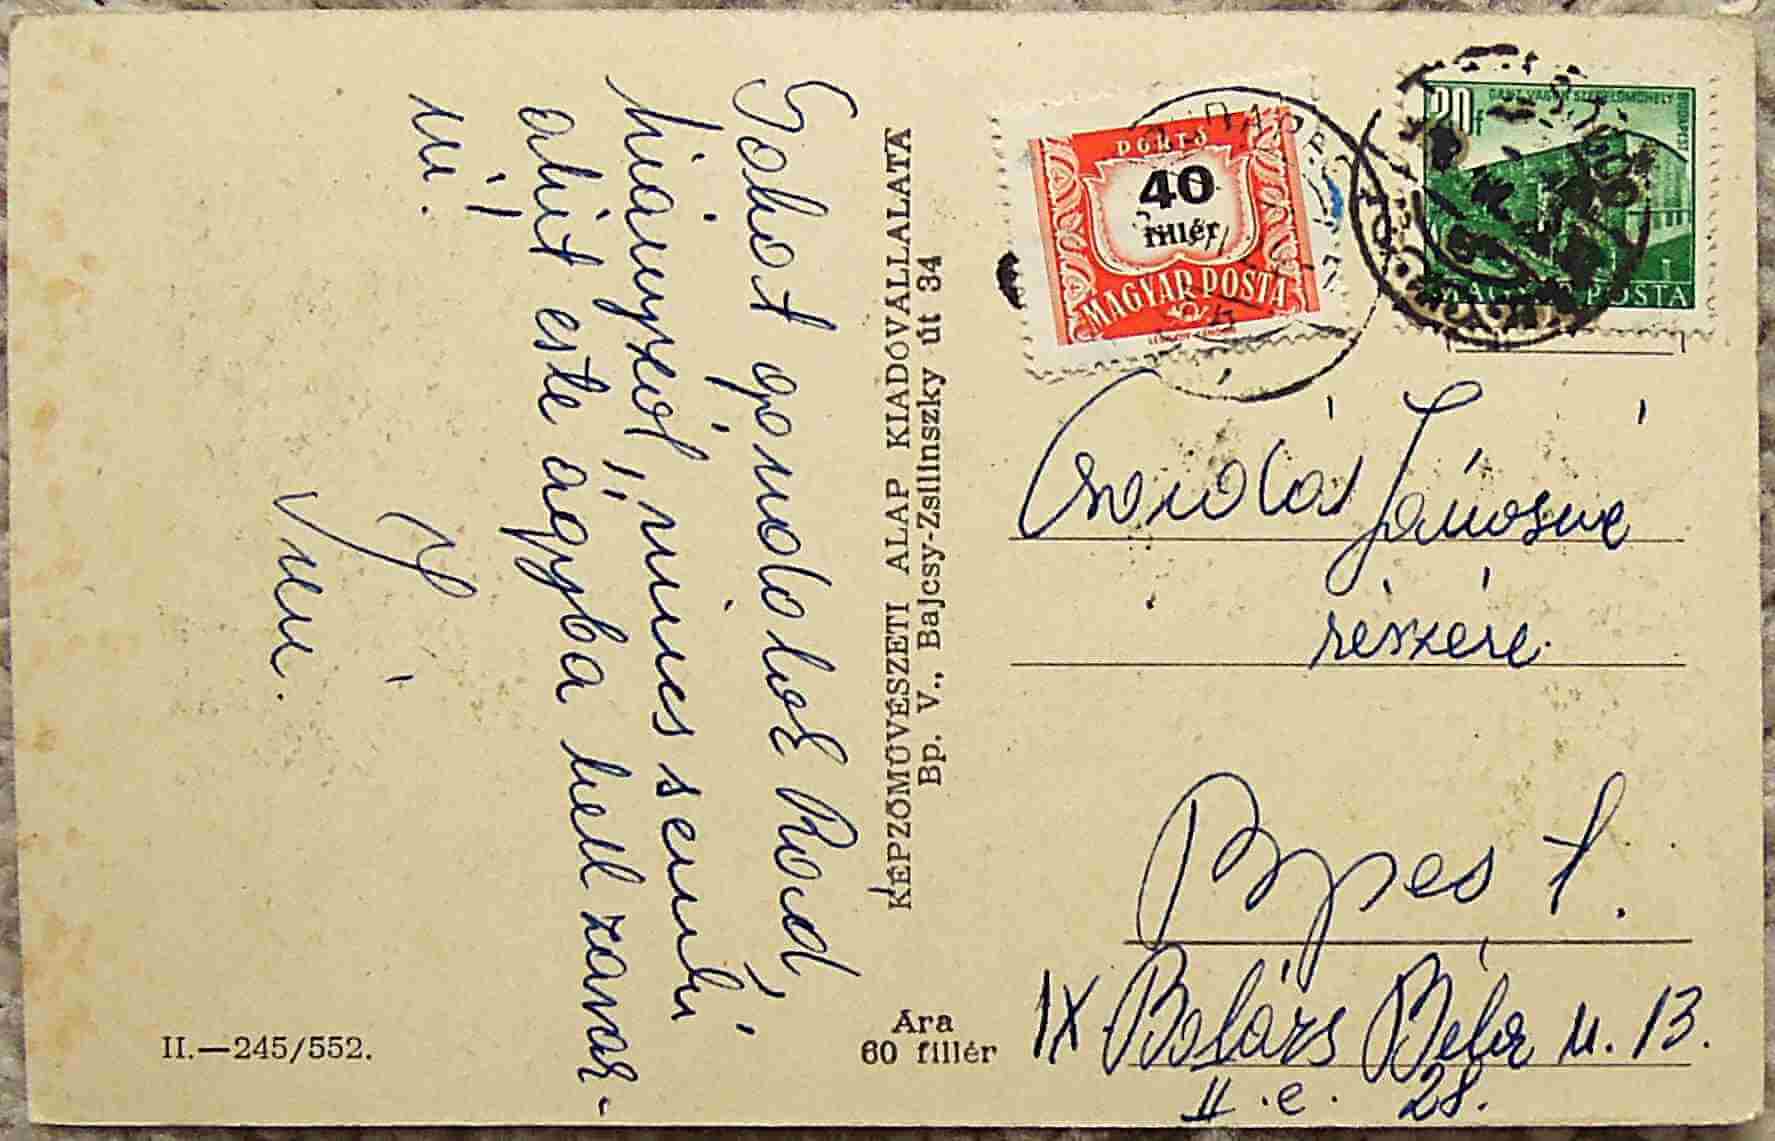 Sokat gondolok Rád,
hiányzol, nincs senki
akit este ágyba kell zavar-
ni!
Imi.
KÉPZŐMŰVÉSZETI ALAP KIADÓVÁLLALATA
Bp. V., Bajcsy-Zsilinszky út 34
II.—245/552.
Ára
60 fillér
PORTÓ
40
fillér
MAGYAR POSTA
20f
GANZ VAGON SZERELŐMŰHELY
BUDAPEST
MAGYAR POSTA
János­né
részére.
Bpes t.
IX Balázs Béla u. 13.
II. e. 28.